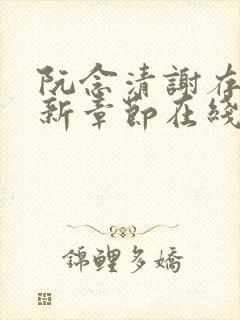 阮念清謝存
新章節在綫
錦鯉多嬌